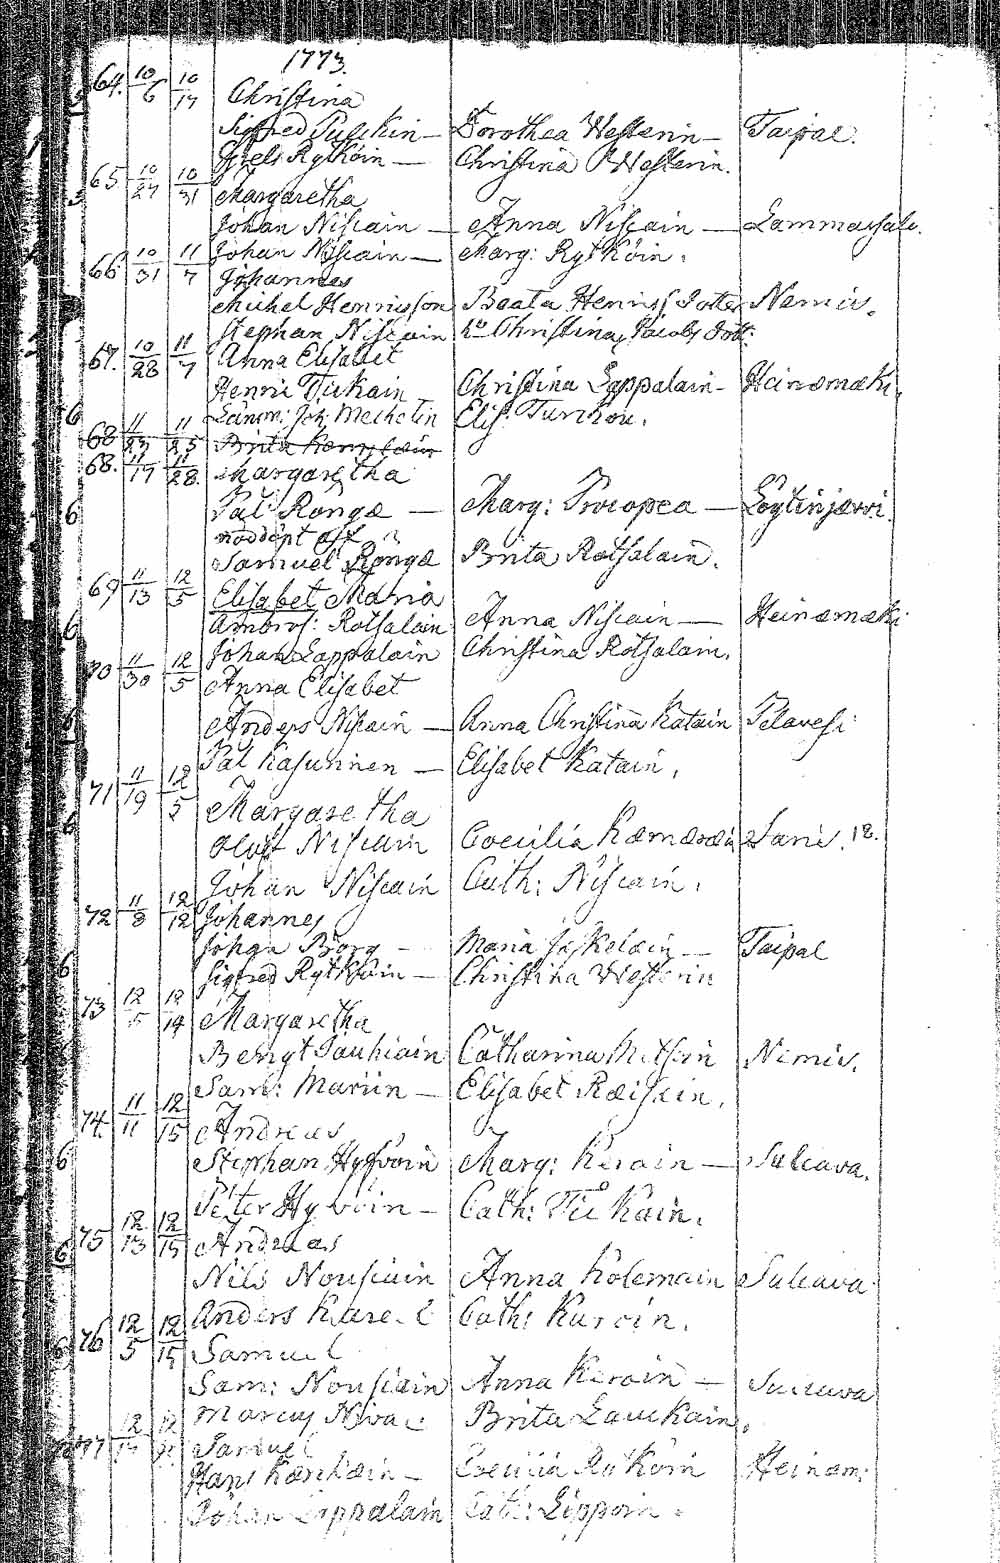 1773.
64. 10/6 10/17 Christina
Sigfred Puschin — Dorothea Westerin — Taipal.
Grels Rytköin — Christina Westerin.
65 10/27 10/31 Margaretha
Johan Niscain — Anna Niscain — Lammassalo.
66 10/31 11/7 Johan Niscain — Marg: Rytköin.
Johannes
Michel Henricsson Beata Henrics Dotter Nemis.
Stephan Niscain Christina Jacobs Dott:
67. 10/28 11/7 Anna Elisabet
Henric Tickain Christina Lappalain — Heinæmæki.
Joh: Mechelin Elis: Turchou.
68 11/23 11/25 Brita
68. 11/17 11/28. Margaretha
Pål Rongæ — Marg: Procopea — Löytinjærvi.
nöddöpt aff
Samuel Rongæ Brita Rotsalain.
69 11/13 12/5 Elisabet Maria
Ambros: Rotsalain Anna Niscain — Heinæmæki
70 11/30 12/5 Johan Lappalain Christina Rotsalain.
Anna Elisabet
Anders Niscain — Anna Christina Katain Pelavesi
Pål Kasurinen — Elisabet Katain.
71 11/19 12/5 Margaretha
Oluf Niscain Coecilia Kæmæræin Sani. 12.
Johan Niscain Cath: Niscain.
72 11/8 12/12 Johannes
Johan Björg — Maria Jæskeläin — Taipal
Sigfred Rytköin — Christina Westerin
73 12/5 12/14 Margaretha
Bengt Jauhiain Catharina Nemis.
Sam: Mariin — Elisabet Ræisæin.
74. 11/11 12/15 Andreas
Stephan Hyfvöin Marg: Keroin — Sulcava.
Peter Hyvöin — Cath: Tickain.
75 12/13 12/15 Andreas
Nils Nousiain Anna Kolemain Sulcava
Anders Cath: Kuroin.
76 12/5 12/15 Samuel
Sam: Nousiain Anna Keroin — Sulcava
Marcus Brita Lauckain.
77 Samuel
Hans Coecilia Rytköin Heinæm:
Johan Lappalain Cath: Lippoin.